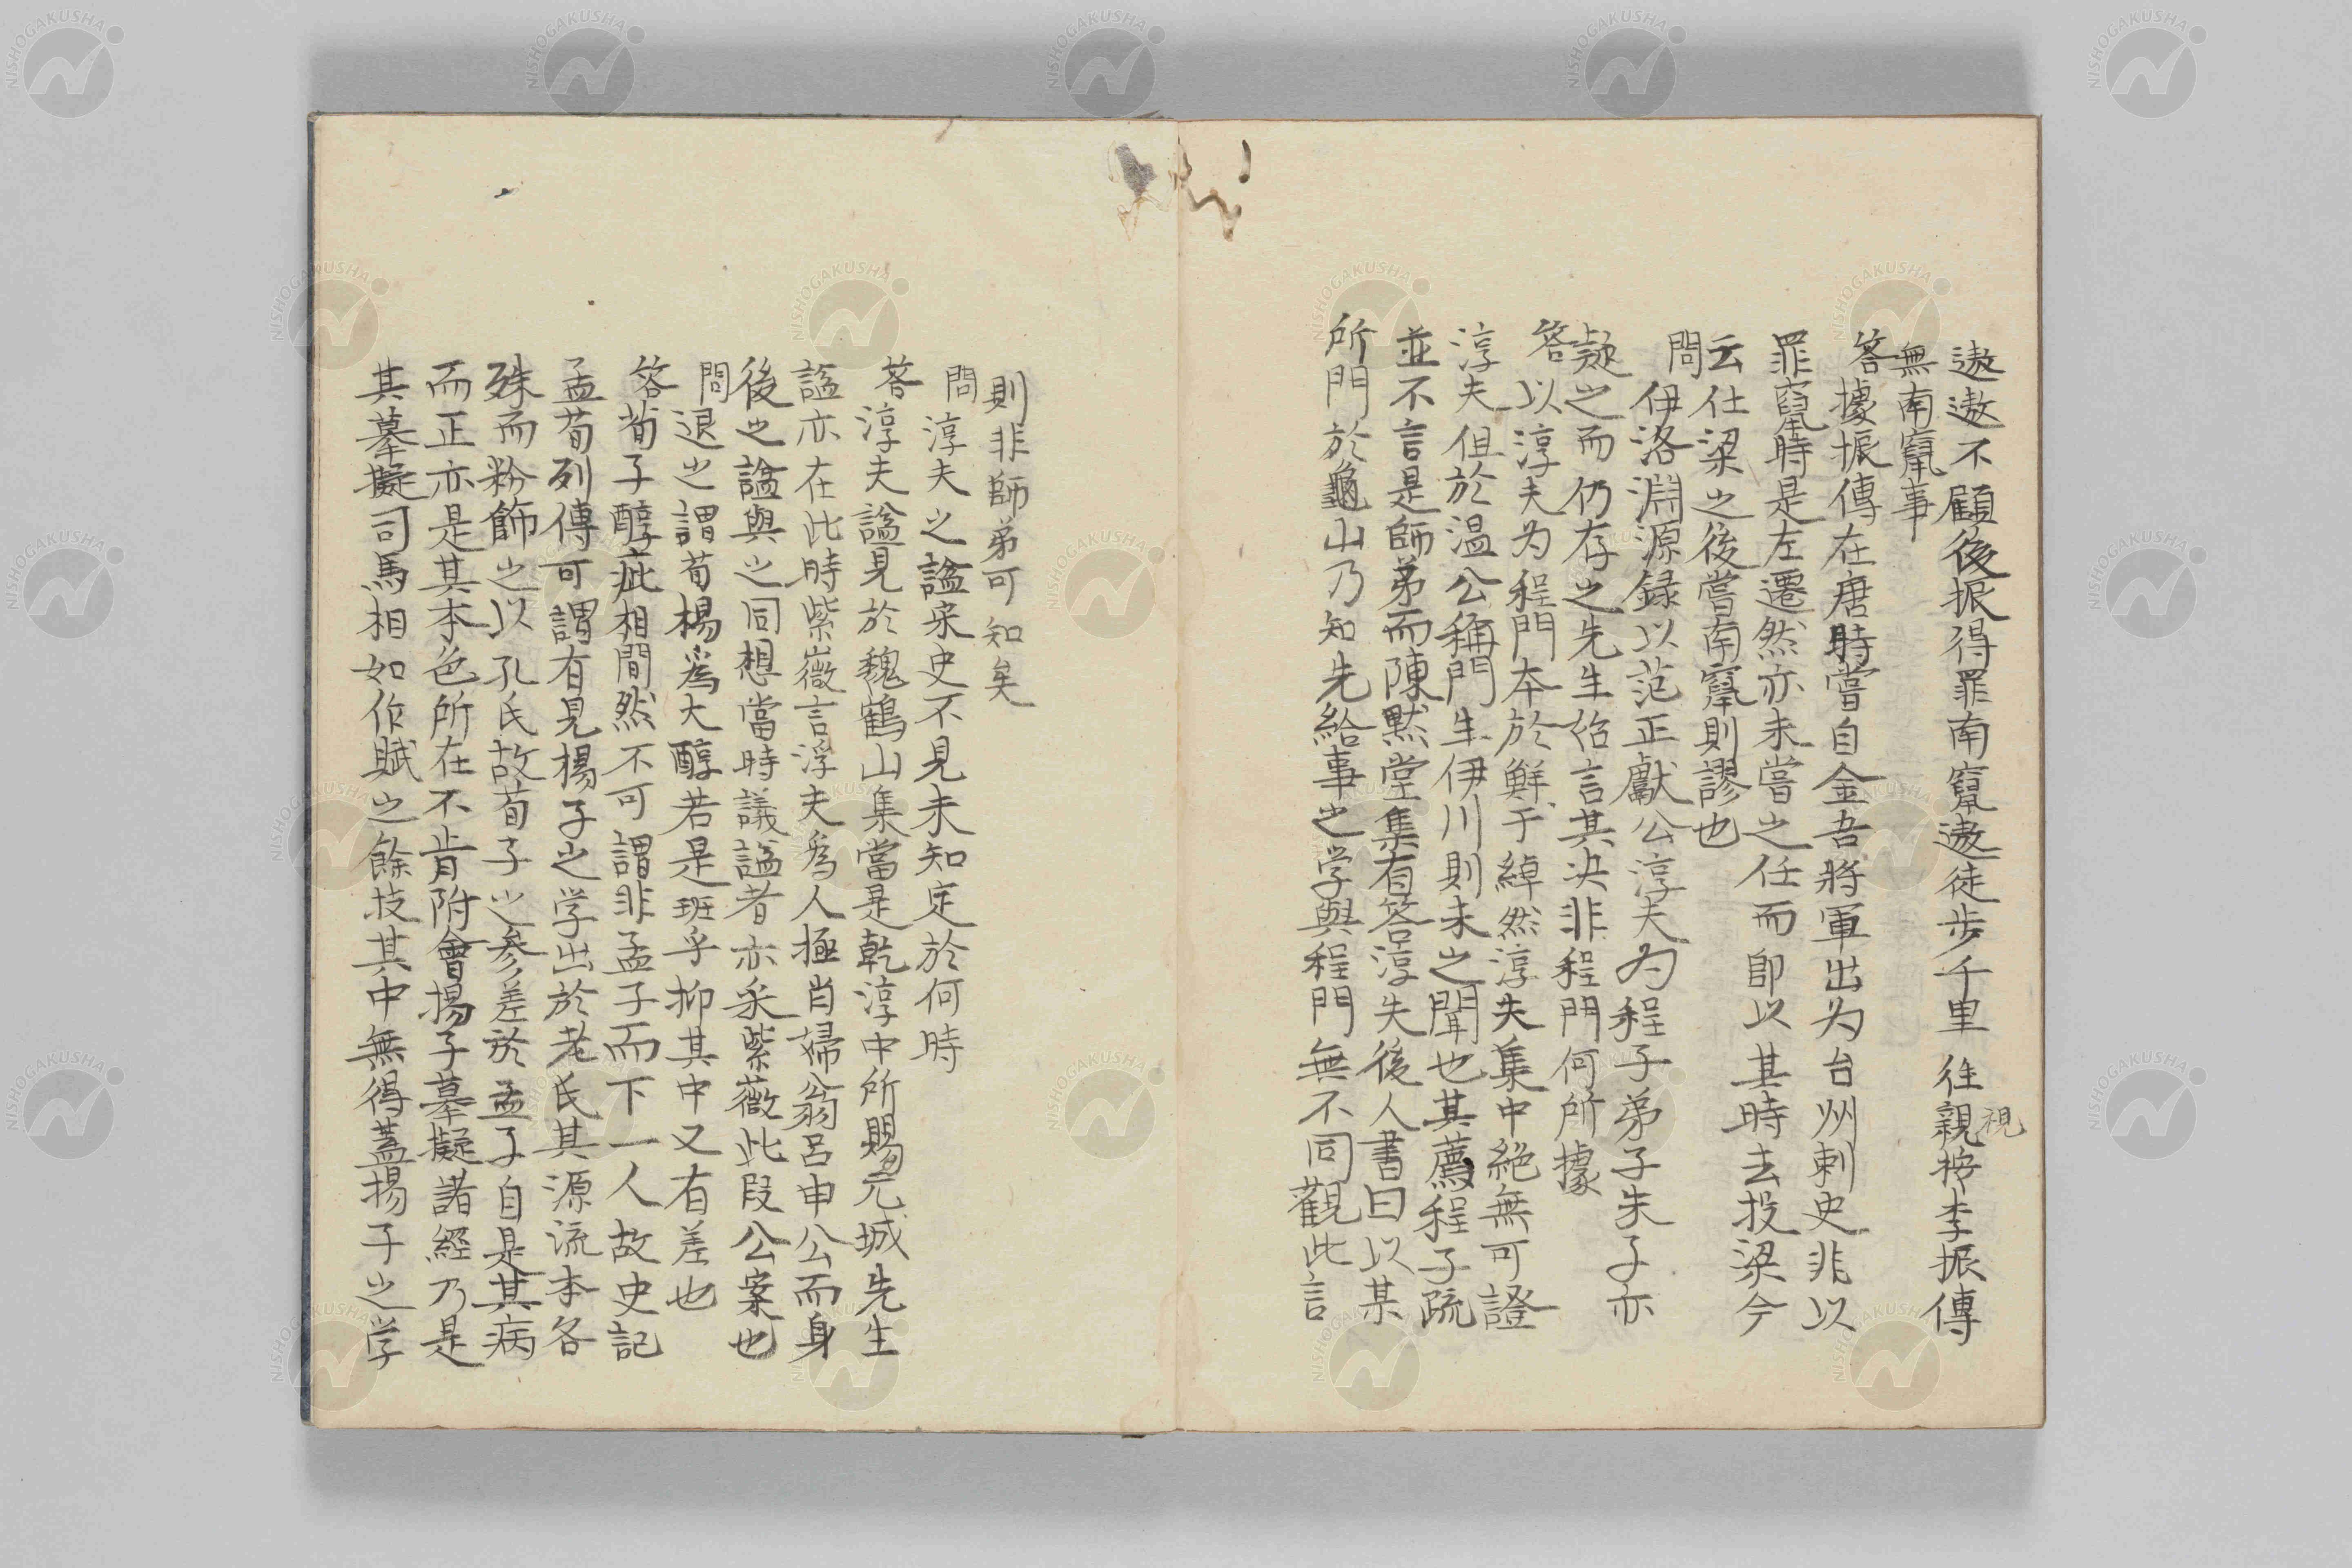 遨遨不顧後振得罪南竄遨徒步千里徃親視按李振傳
無南竄事
答據振傳在唐時嘗自金吾將軍出为台州刺史非以
罪竄時是左遷然亦未嘗之任而即以其時去投梁今
云仕梁之後嘗南竄則謬也
問伊洛淵源録以范正獻公淳夫为程子弟子朱子亦
疑之而仍存之先生始言其決非程門何所據
答以淳夫为程門本於鮮于綽然淳夫集中絕無可證
淳夫但於温公稱門生伊川則未之聞也其薦程子疏
並不言是師弟而陳黙堂集有答淳夫後人書曰以某
所門於龜山乃知先給事之学與程門無不同觀此言
則非師弟可知矣
問淳夫之諡宋史不見未知定於何時
荅淳夫諡見於魏鶴山集當是乾淳中所賜元城先生
諡亦在此時紫薇言淳夫為人極肖婦翁呂申公而身
後之諡與之同想當時議諡者亦采紫薇此段公案也
問退之謂荀楊為大醇若是班乎抑其中又有差也
答荀子醇疵相間然不可謂非孟子而下一人故史記
孟荀列傳可謂有見楊子之学出於老氏其源流本各
殊而粉飾之以孔氏故荀子之参差於孟子自是其病
而正亦是其本色所在不肯附會揚子摹擬諸經乃是
其摹擬司馬相如作賦之餘技其中無得蓋揚子之学
NISHOGAKUSHA